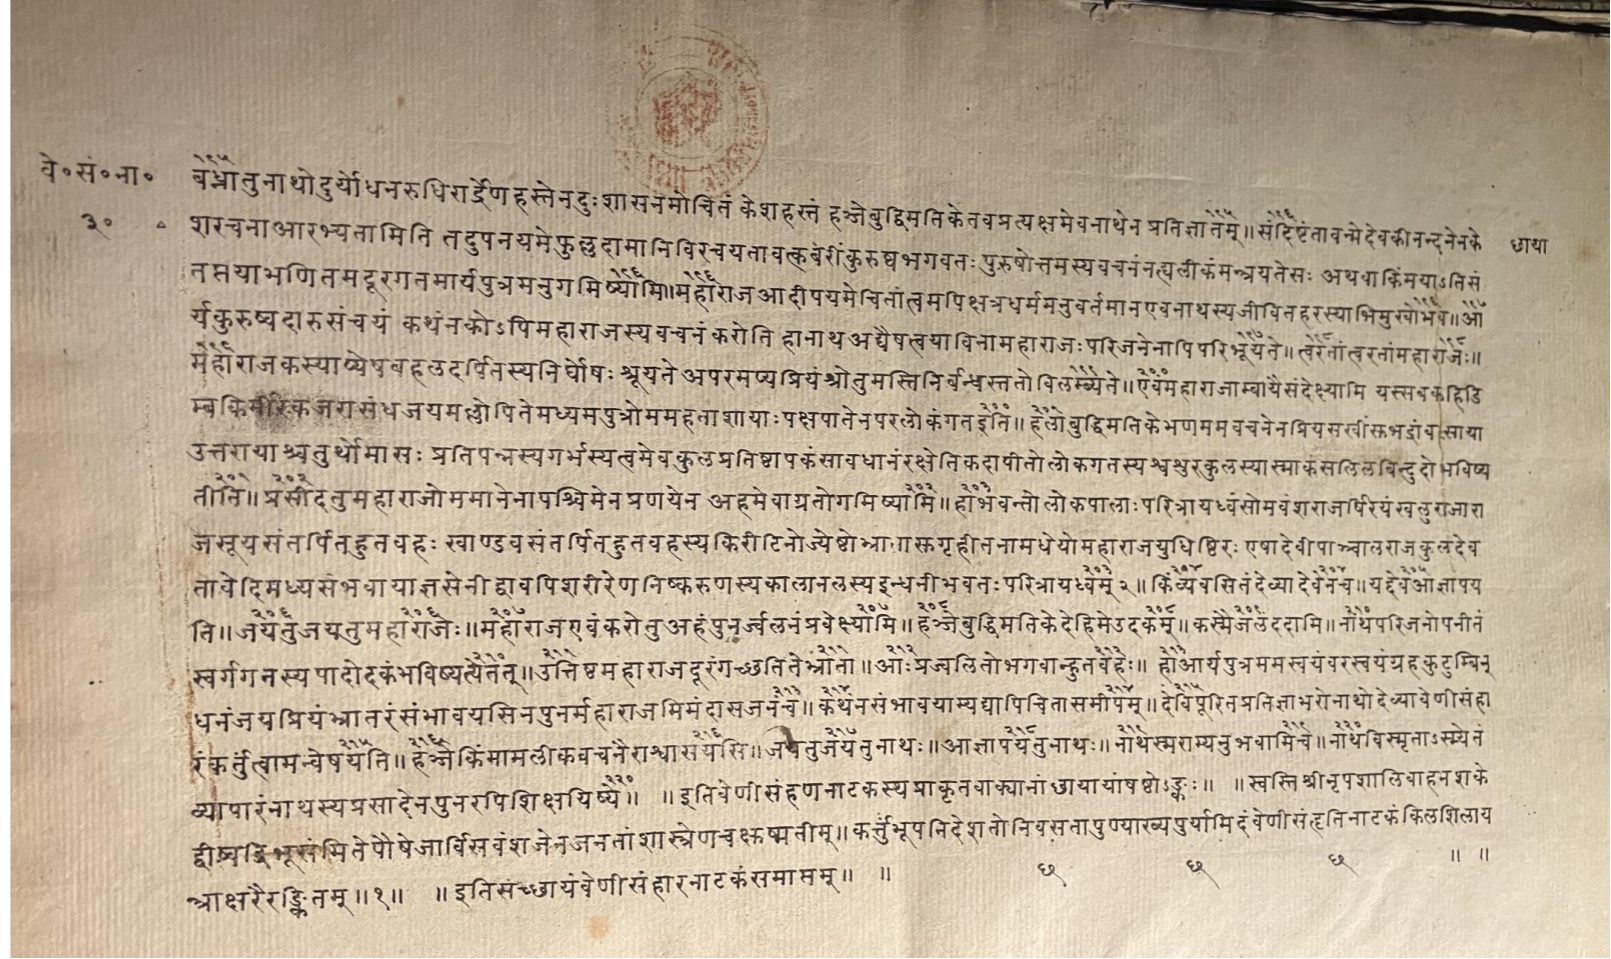 वे॰सं॰ना॰
३०
छाया
बध्नातुनाथोदुर्योधनरुधिरार्द्रेणहस्तेनदुःशासनमोचितं केशहस्तं हञ्जेबुद्धिमतिकेतवप्रत्यक्षमेवनाथेन प्रतिज्ञातम्॥संदिष्टंतावन्मेदेवकीनन्दनेनके
शरचनाआरभ्यतामिति तदुपनयमेफुल्लदामानिविरचयतावत्कबरींकुरुष्वभगवतः पुरुषोत्तमस्यवचनंनत्वलीकंमन्त्रयतेसः अथवाकिंमयाऽतिसं
तप्तयाभणितमदूरगतमार्यपुत्रमनुगमिष्यामि॥महाराजआदीपयमेचितांत्वमपिक्षत्रधर्ममनुवर्तमानएवनाथस्यजीवितहरस्याभिमुखोभव॥आ
र्यकुरुष्वदारुसंचयं कथंनकोऽपिमहाराजस्यवचनंकरोति हानाथअद्यैषत्वयाविनामहाराजःपरिजनेनापिपरिभूयते॥त्वरतांत्वरतांमहाराजः॥
महाराजकस्याप्येषबहलदर्पितस्यनिर्घोषः श्रूयते अपरमप्यप्रियंश्रोतुमस्तिनिर्बन्धस्ततोविलम्ब्यते॥एवंमहाराजाम्बायैसंदेक्ष्यामि यस्सबकहिडि
म्बकिर्मीरकजरासंधजयमल्लोपितेमध्यमपुत्रोममहताशायाःपक्षपातेनपरलोकंगतइति॥हलाबुद्धिमतिकेभणममवचनेनप्रियसखींसुभद्रांवत्साया
उत्तरायाश्चतुर्थोमासः प्रतिपन्नस्यगर्भस्यत्वमेवकुलप्रतिष्ठापकंसावधानंरक्षेतिकदापीतोलोकगतस्यश्वशुरकुलस्यास्माकंसलिलबिन्दुदोभविष्य
तीति॥प्रसीदतुमहाराजोममानेनापश्चिमेनप्रणयेन अहमेवाग्रतोगमिष्यामि॥हाभवन्तोलोकपालाःपरित्रायध्वंसोमवंशराजर्षिरयंखलुराजारा
जसूयसंतर्पितहुतवहः खाण्डवसंतर्पितहुतवहस्यकिरीटिनोज्येष्ठोभ्रातासुगृहीतनामधेयोमहाराजयुधिष्ठिरः एषादेवीपाञ्चालराजकुलदेव
तावेदिमध्यसंभवायाज्ञसेनीद्वावपिशरीरेणनिष्करुणस्यकालानलस्यइन्धनीभवतःपरित्रायध्वम्२॥किंव्यवसितंदेव्यादेवेनच॥यद्देवआज्ञापय
ति॥जयतुजयतुमहाराजः॥महाराजएवंकरोतुअहंपुनर्ज्वलनंप्रवेक्ष्यामि॥हञ्जेबुद्धिमतिकेदेहिमेउदकम्॥कस्मैजलंददामि॥नाथपरिजनोपनीतं
स्वर्गगतस्यपादोदकंभविष्यत्येतत्॥उत्तिष्ठमहाराजदूरंगच्छतितेभ्राता॥आःप्रज्वलितोभगवान्हुतवहः॥ हाआर्यपुत्रममस्वयंवरस्वयंग्रहकुटुम्बिन्
धनंजयप्रियंभ्रातरंसंभावयसिनपुनर्महाराजमिमंदासजनंच॥कथंनसंभावयाम्यद्यापिचितासमीपम्॥देविपूरितप्रतिज्ञाभरोनाथोदेव्यावेणीसंहा
रंकर्तुंत्वामन्वेषयति॥हञ्जेकिंमामलीकवचनैराश्वासयसि॥जयतुजयतुनाथः॥आज्ञापयतुनाथः॥नाथस्मराम्यनुभवामिच॥नाथविस्मृताऽस्म्येनं
व्यापारंनाथस्यप्रसादेनपुनरपिशिक्षयिष्ये॥ ॥इतिवेणीसंहणनाटकस्यप्राकृतवाक्यानांछायायांषष्ठोऽङ्कः॥ ॥स्वस्तिश्रीनृपशालिवाहनशके
पौषेजार्विसवंशजेनजनतांशास्त्रेणचक्षुष्मतीम्॥कर्त्तुंभूपनिदेशतोनिवसतापुण्याख्यपुर्यामिदंवेणीसंहृतिनाटकंकिलशिलाय
न्त्राक्षरैरङ्कितम्॥१॥ ॥इतिसच्छायंवेणीसंहारनाटकंसमाप्तम्॥ ॥ छ छ छ ॥ ॥